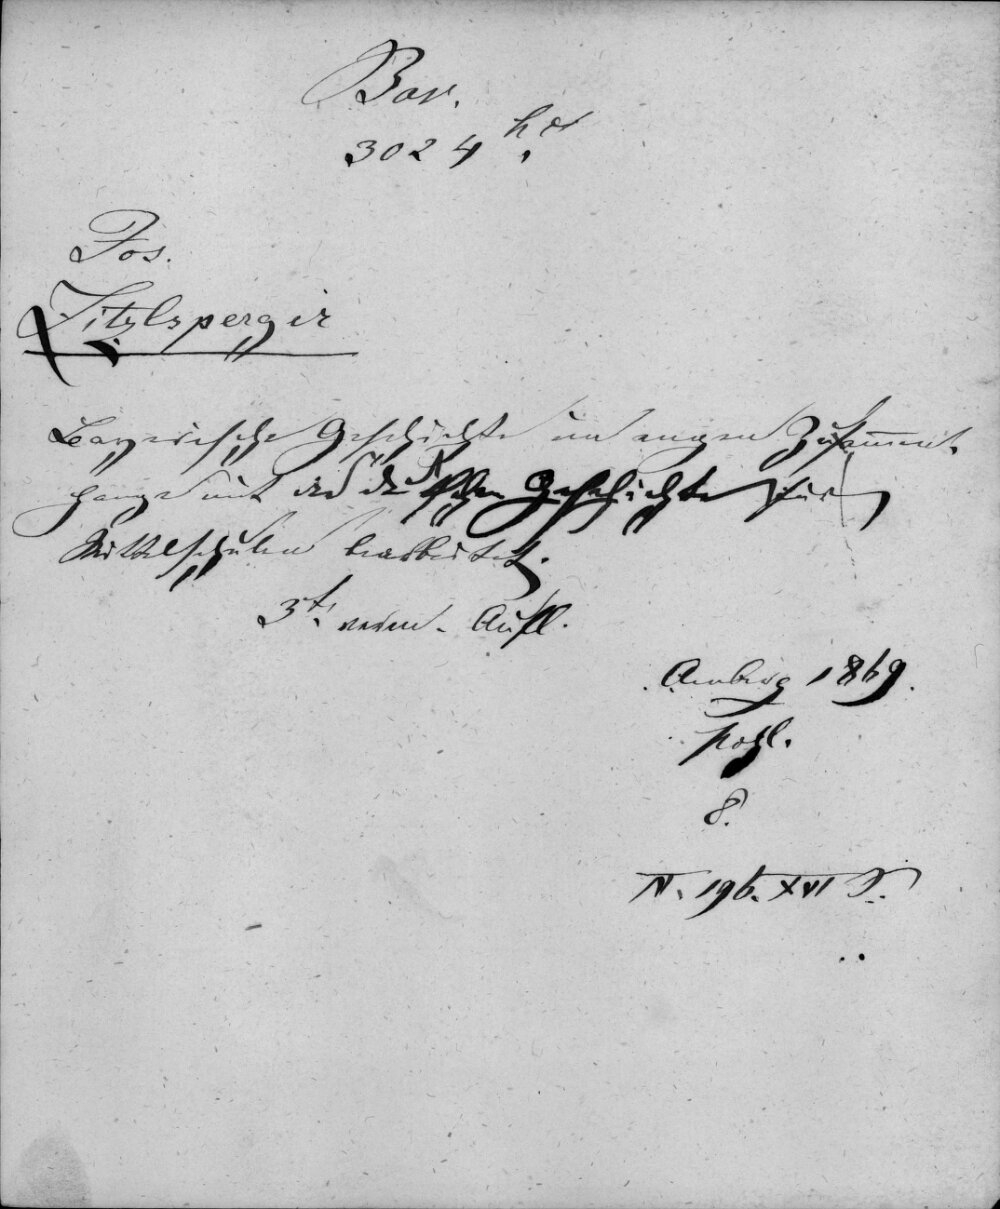 Bav.
3024
Jos.
Sitzlsperger
Bayerische Geschichte im engen Zusammen-
hange mit der deutschen Geschichte für
Mittelschulen bearbeitet.
3t. verm. Aufl.
Amberg 1869.
Pohl.
8.
IV. 196. XVI S.